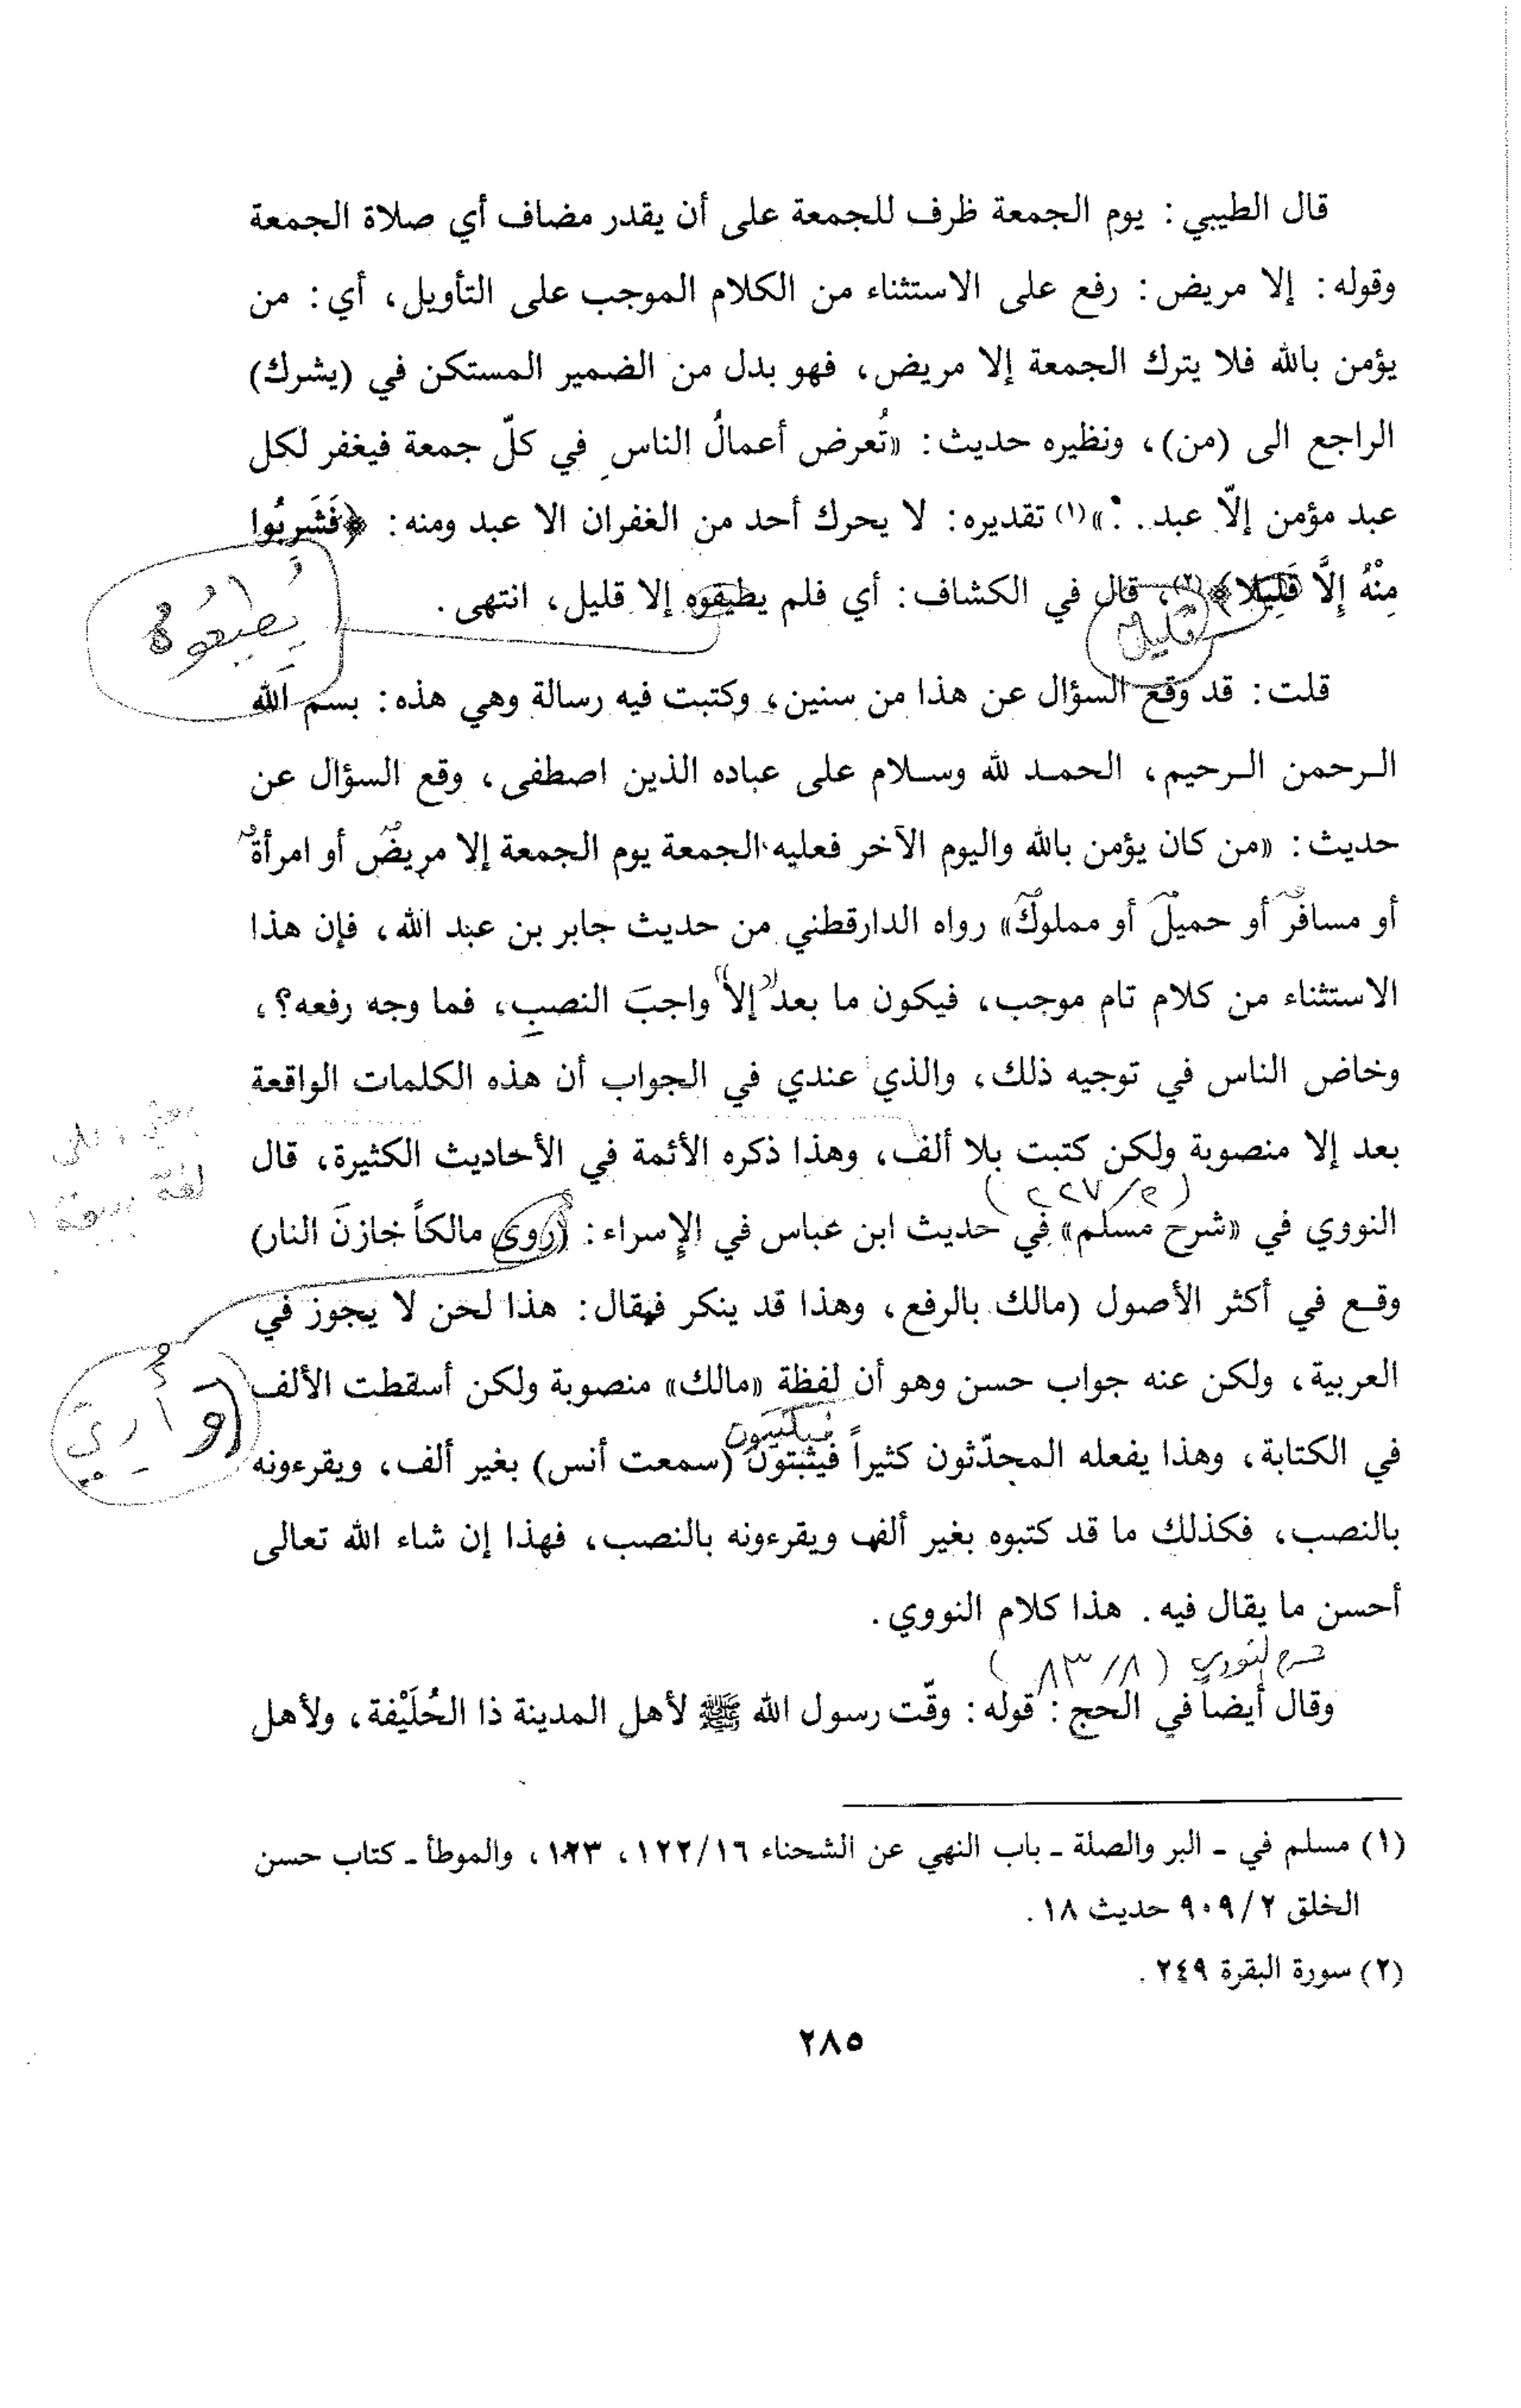 قال الطيبي : يوم الجمعة ظرف للجمعة على أن يقدر مضاف أي صلاة الجمعة
وقوله : إلا مريض : رفع على الاستثناء من الكلام الموجب على التأويل، أي : من
يؤمن بالله فلا يترك الجمعة إلا مريض، فهو بدل من الضمير المستكن في (يشرك)
الراجع الى (من)، ونظيره حديث : «تُعرض أعمالُ الناسِ في كلّ جمعة فيغفر لكل
عبد مؤمن إلّا عبد. . :»(١) تقديره : لا يحرك أحد من الغفران الا عبد ومنه : ﴿فَشَرِبُوا
مِنْهُ إِلَّا قَلِيلا﴾(٢)، قال في الكشاف : أي فلم يطيقوه إلا قليل، انتهى .
قليلٌ
يُطيعوه
قلت : قد وقع السؤال عن هذا من سنين، وكتبت فيه رسالة وهي هذه : بسم الله
الرحمن الرحيم، الحمد لله وسلام على عباده الذين اصطفى، وقع السؤال عن
حديث : «من كان يؤمن بالله واليوم الآخر فعليه الجمعة يوم الجمعة إلا مريضٌ أو امرأةٌ
أو مسافرٌ أو حميلٌ أو مملوكٌ» رواه الدارقطني من حديث جابر بن عبد الله، فإن هذا
الاستثناء من كلام تام موجب، فيكون ما بعد «إلا» واجبَ النصبِ، فما وجه رفعه؟،
وخاض الناس في توجيه ذلك، والذي عندي في الجواب أن هذه الكلمات الواقعة
بعد إلا منصوبة ولكن كتبت بلا ألف، وهذا ذكره الأئمة في الأحاديث الكثيرة، قال
لغة ربيعة
(٢/٢٢٧)
النووي في «شرح مسلم» في حديث ابن عباس في الإسراء : (روى مالكاً خازنَ النار)
وقع في أكثر الأصول (مالك بالرفع، وهذا قد ينكر فيقال : هذا لحن لا يجوز في
العربية، ولكن عنه جواب حسن وهو أن لفظة «مالك» منصوبة ولكن أسقطت الألف
(وأُرِيَ
فيكتبون
في الكتابة، وهذا يفعله المحدّثون كثيراً فيثبتون (سمعت أنس) بغير ألف، ويقرءونه
بالنصب، فكذلك ما قد كتبوه بغير ألف ويقرءونه بالنصب، فهذا إن شاء الله تعالى
أحسن ما يقال فيه . هذا كلام النووي .
شرح النووي (٨/٨٣)
وقال أيضاً في الحج : قوله : وقّت رسول الله ﷺ لأهل المدينة ذا الحُلَيْفة، ولأهل
(١) مسلم في - البر والصلة - باب النهي عن الشحناء ١٢٢/١٦، ١٢٣، والموطأ - كتاب حسن
الخلق ٩٠٩/٢ حديث ١٨ .
(٢) سورة البقرة ٢٤٩ .
٢٨٥